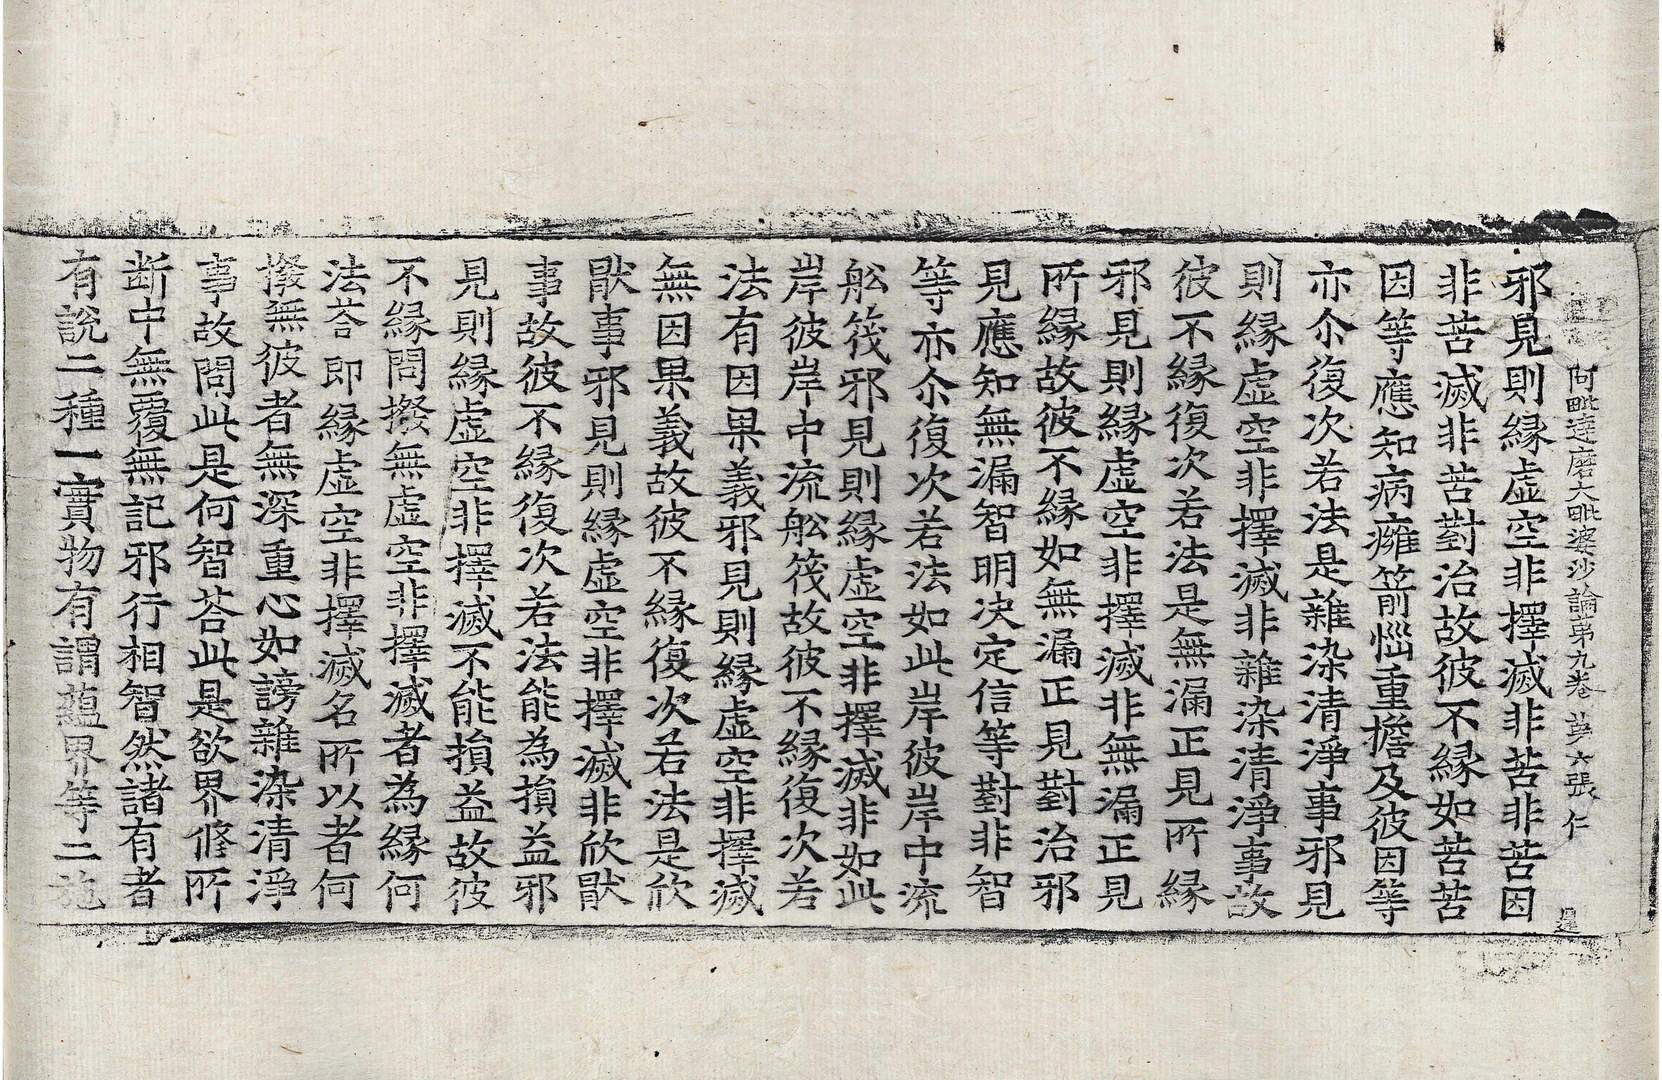 阿毗達磨大毗婆沙論第九卷 第六張 仁
邪見則縁虛空非擇滅非苦非苦因
非苦滅非苦對治故彼不縁如苦苦
因等應知病癰箭惱重擔及彼因等
亦尒復次若法是雜染清淨事邪見
則縁虛空非擇滅非雜染清淨事故
彼不縁復次若法是無漏正見所縁
邪見則縁虛空非擇滅非無漏正見
所縁故彼不縁如無漏正見對治邪
見應知無漏智明决定信等對非智
等亦尒復次若法如此岸彼岸中流
舩筏邪見則縁虛空非擇滅非如此
岸彼岸中流舩筏故彼不縁復次若
法有因果義邪見則縁虛空非擇滅
無因果義故彼不縁復次若法是欣
猒事邪見則縁虛空非擇滅非欣猒
事故彼不縁復次若法能為損益邪
見則縁虛空非擇滅不能損益故彼
不縁問撥無虛空非擇滅者為縁何
法荅即縁虛空非擇滅名所以者何
撥無彼者無深重心如謗雜染清淨
事故問此是何智荅此是欲界修所
断中無覆無記邪行相智然諸有者
有說二種一實物有謂蘊界等二施